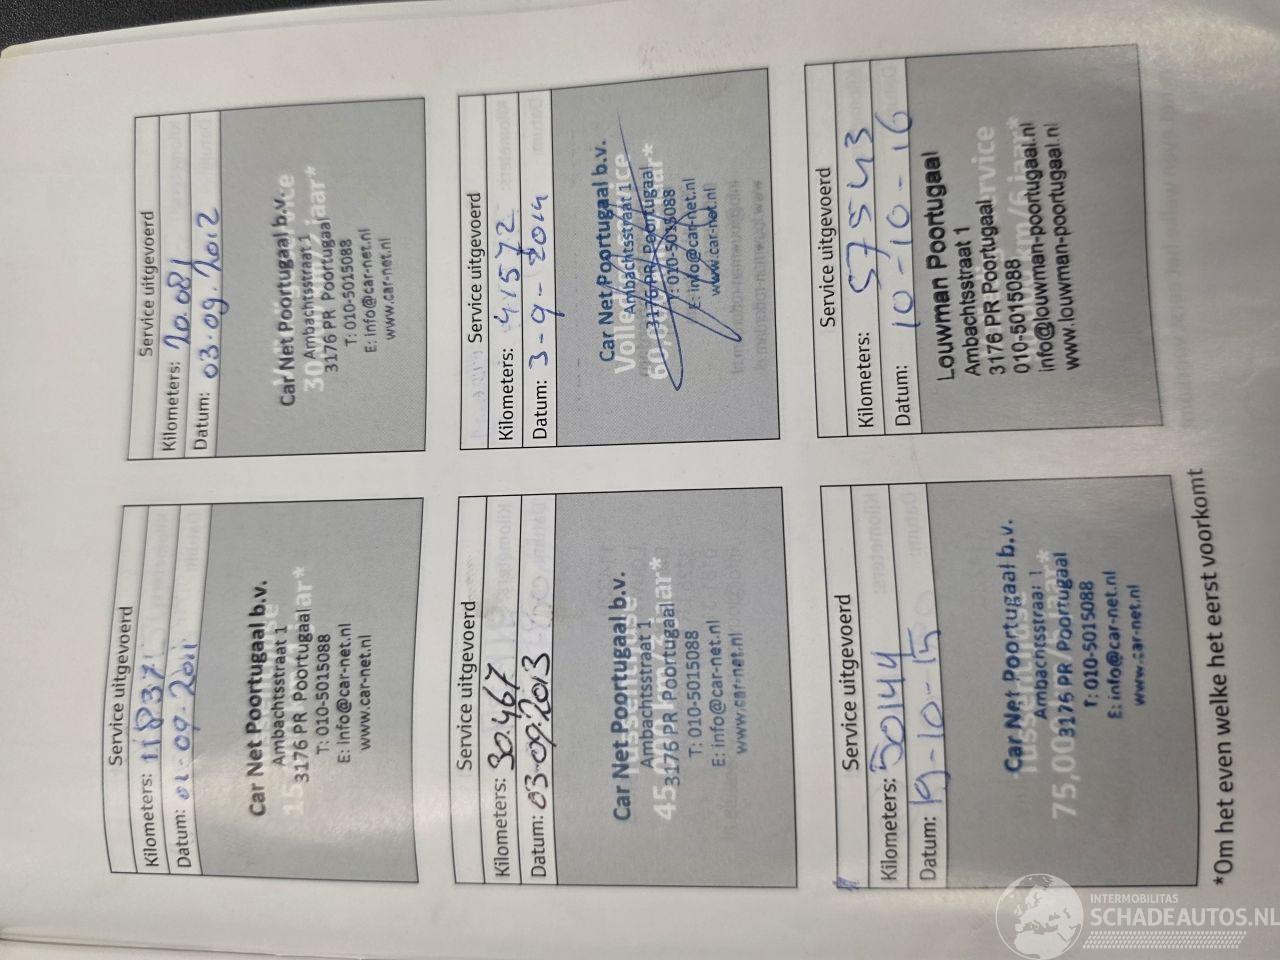 Service uitgevoerd
Kilometers: 11837
Datum: 02-09-2011
15.
aar*
Car Net Poortugaal b.v.
Ambachtsstraat 1
3176 PR Poortugaal
T: 010-5015088
E: info@car-net.nl
www.car-net.nl
Service uitgevoerd
Kilometers: 20.081
Datum: 03.09.2012
30
jaar*
Car Net Poortugaal b.v.
Ambachtsstraat 1
3176 PR Poortugaal
T: 010-5015088
E: info@car-net.nl
www.car-net.nl
Service uitgevoerd
Kilometers: 30.467
Datum: 03-09-2013
45.
jaar*
Car Net Poortugaal b.v.
Ambachtsstraat 1
3176 PR Poortugaal
T: 010-5015088
E: info@car-net.nl
www.car-net.nl
Service uitgevoerd
Kilometers: 41572
Datum: 3-9-2014
60.
ar*
Car Net Poortugaal b.v.
Ambachtsstraat 1
3176 PR Poortugaal
T: 010-5015088
E: info@car-net.nl
www.car-net.nl
Service uitgevoerd
Kilometers: 50144
Datum: 19-10-15
75.00
jaar*
Car Net Poortugaal b.v.
Ambachtsstraat 1
3176 PR Poortugaal
T: 010-5015088
E: info@car-net.nl
www.car-net.nl
Service uitgevoerd
Kilometers: 57543
Datum: 10-10-16
rvice
m/6 jaar*
Louwman Poortugaal
Ambachtsstraat 1
3176 PR Poortugaal
010-5015088
info@louwman-poortugaal.nl
www.louwman-poortugaal.nl
*Om het even welke het eerst voorkomt
INTERMOBILITAS
SCHADEAUTOS.NL